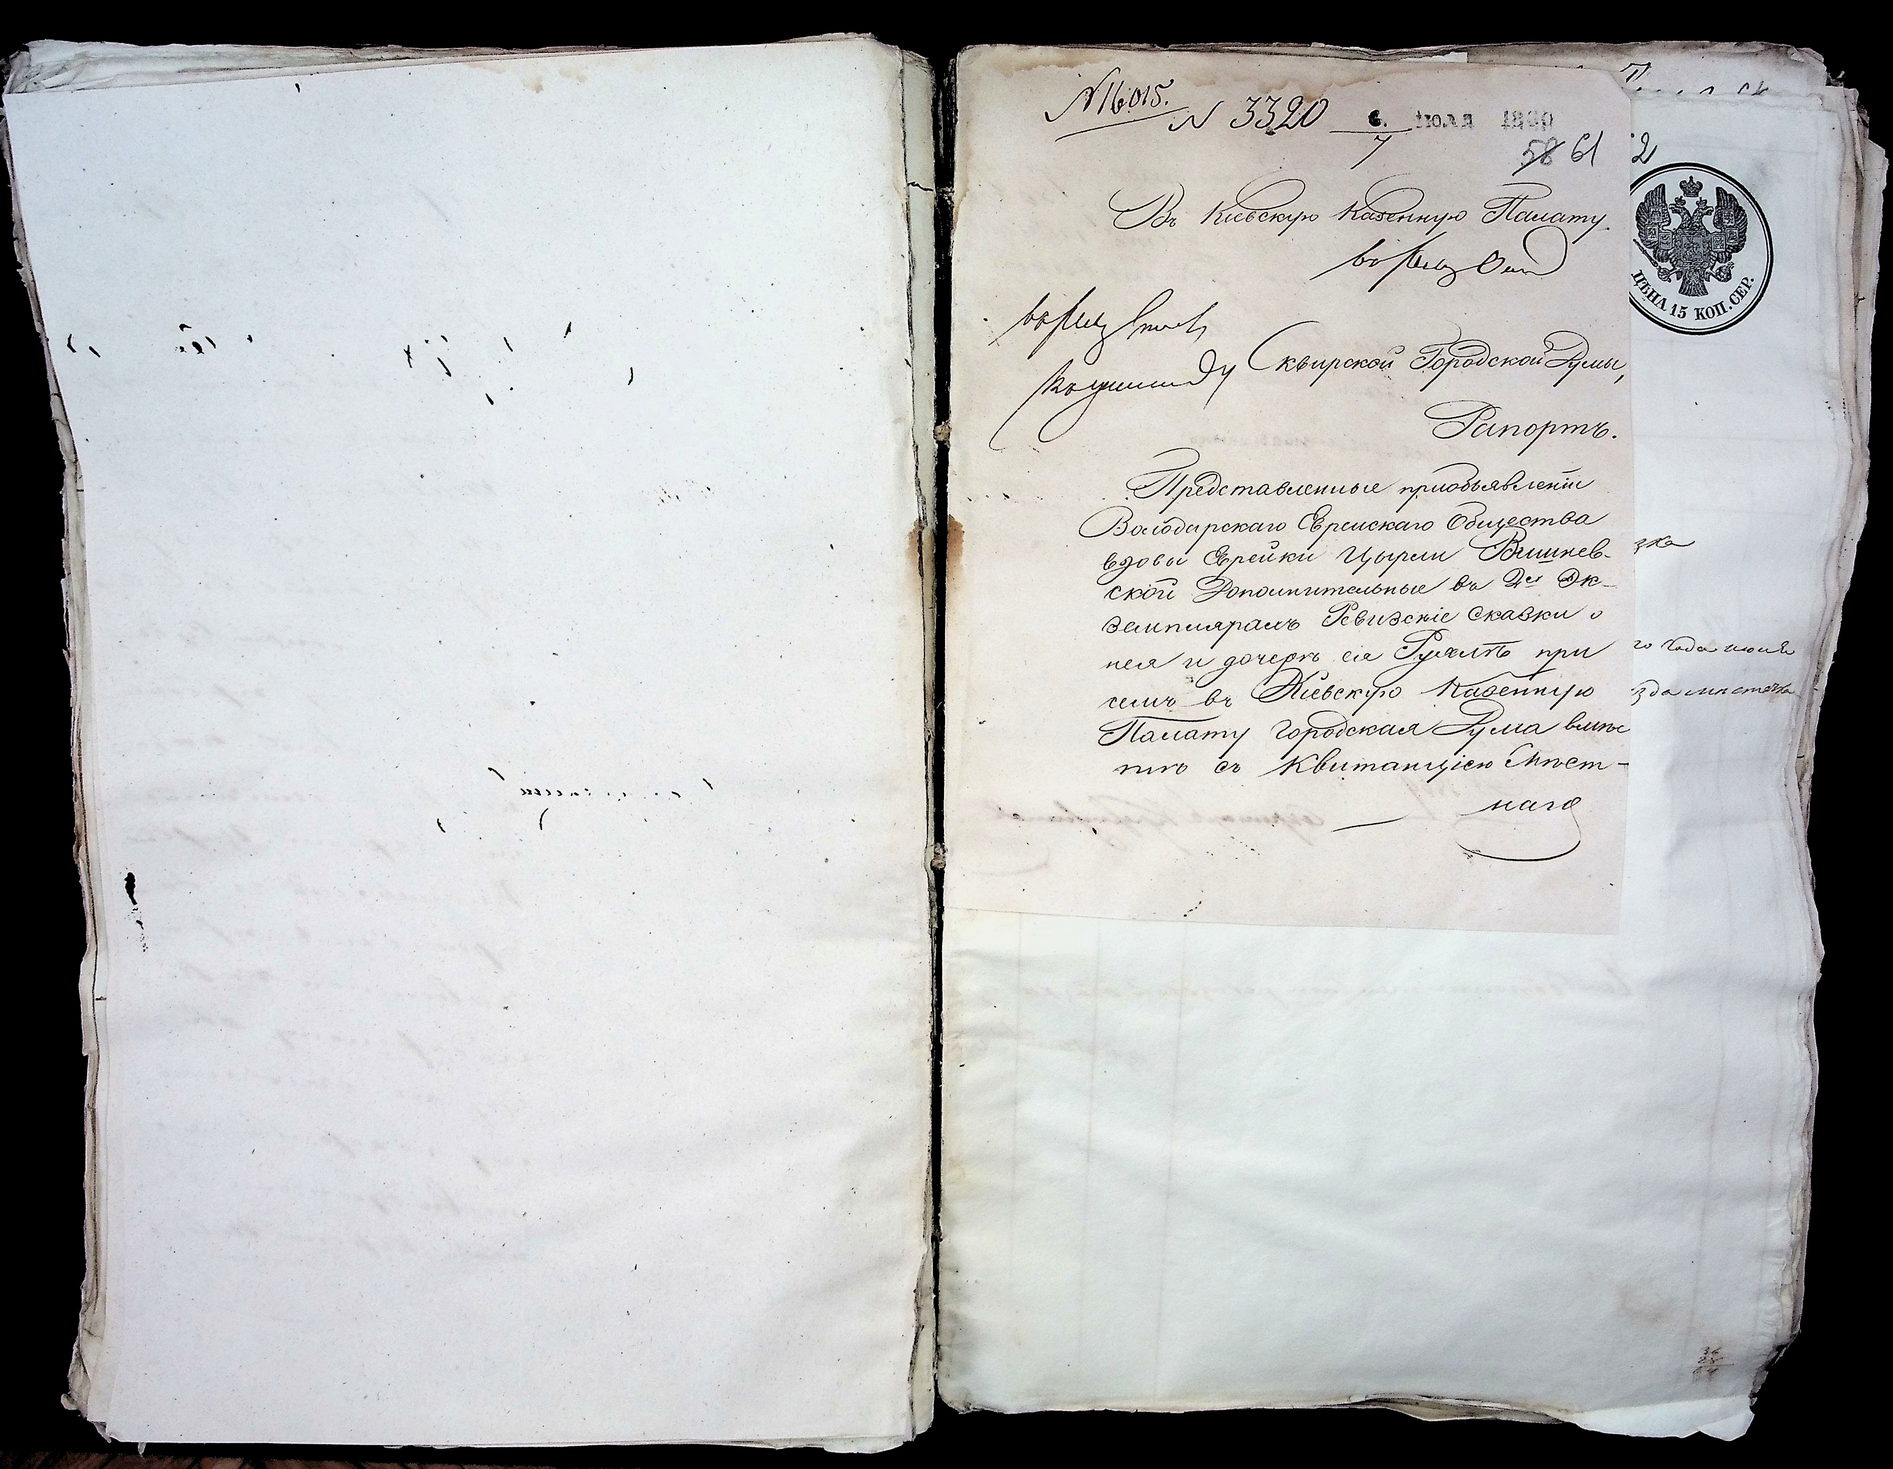 № 16015.
№ 3320 6. июля 1860
7
58 61
2
Въ Кіевскую Казенную Палату.
ЦѢНА 15 КОП. СЕР.
Сквирской Городской Думы,
Рапортъ.
Представленные приобъявленіи
Володарскаго Еврейскаго Общества
вдовы Еврейки Цырли Вишнев-
ской Дополнительные въ 2хъ Эк-
земплярахъ Ревизскіе Сказки о
ней и дочерѣ ея при
семъ въ Кіевскую Казенную
Палату Городская Дума вмѣс
тѣ съ Квитанціею Мѣст-
наго
зка
го года июля
зда мѣстечка